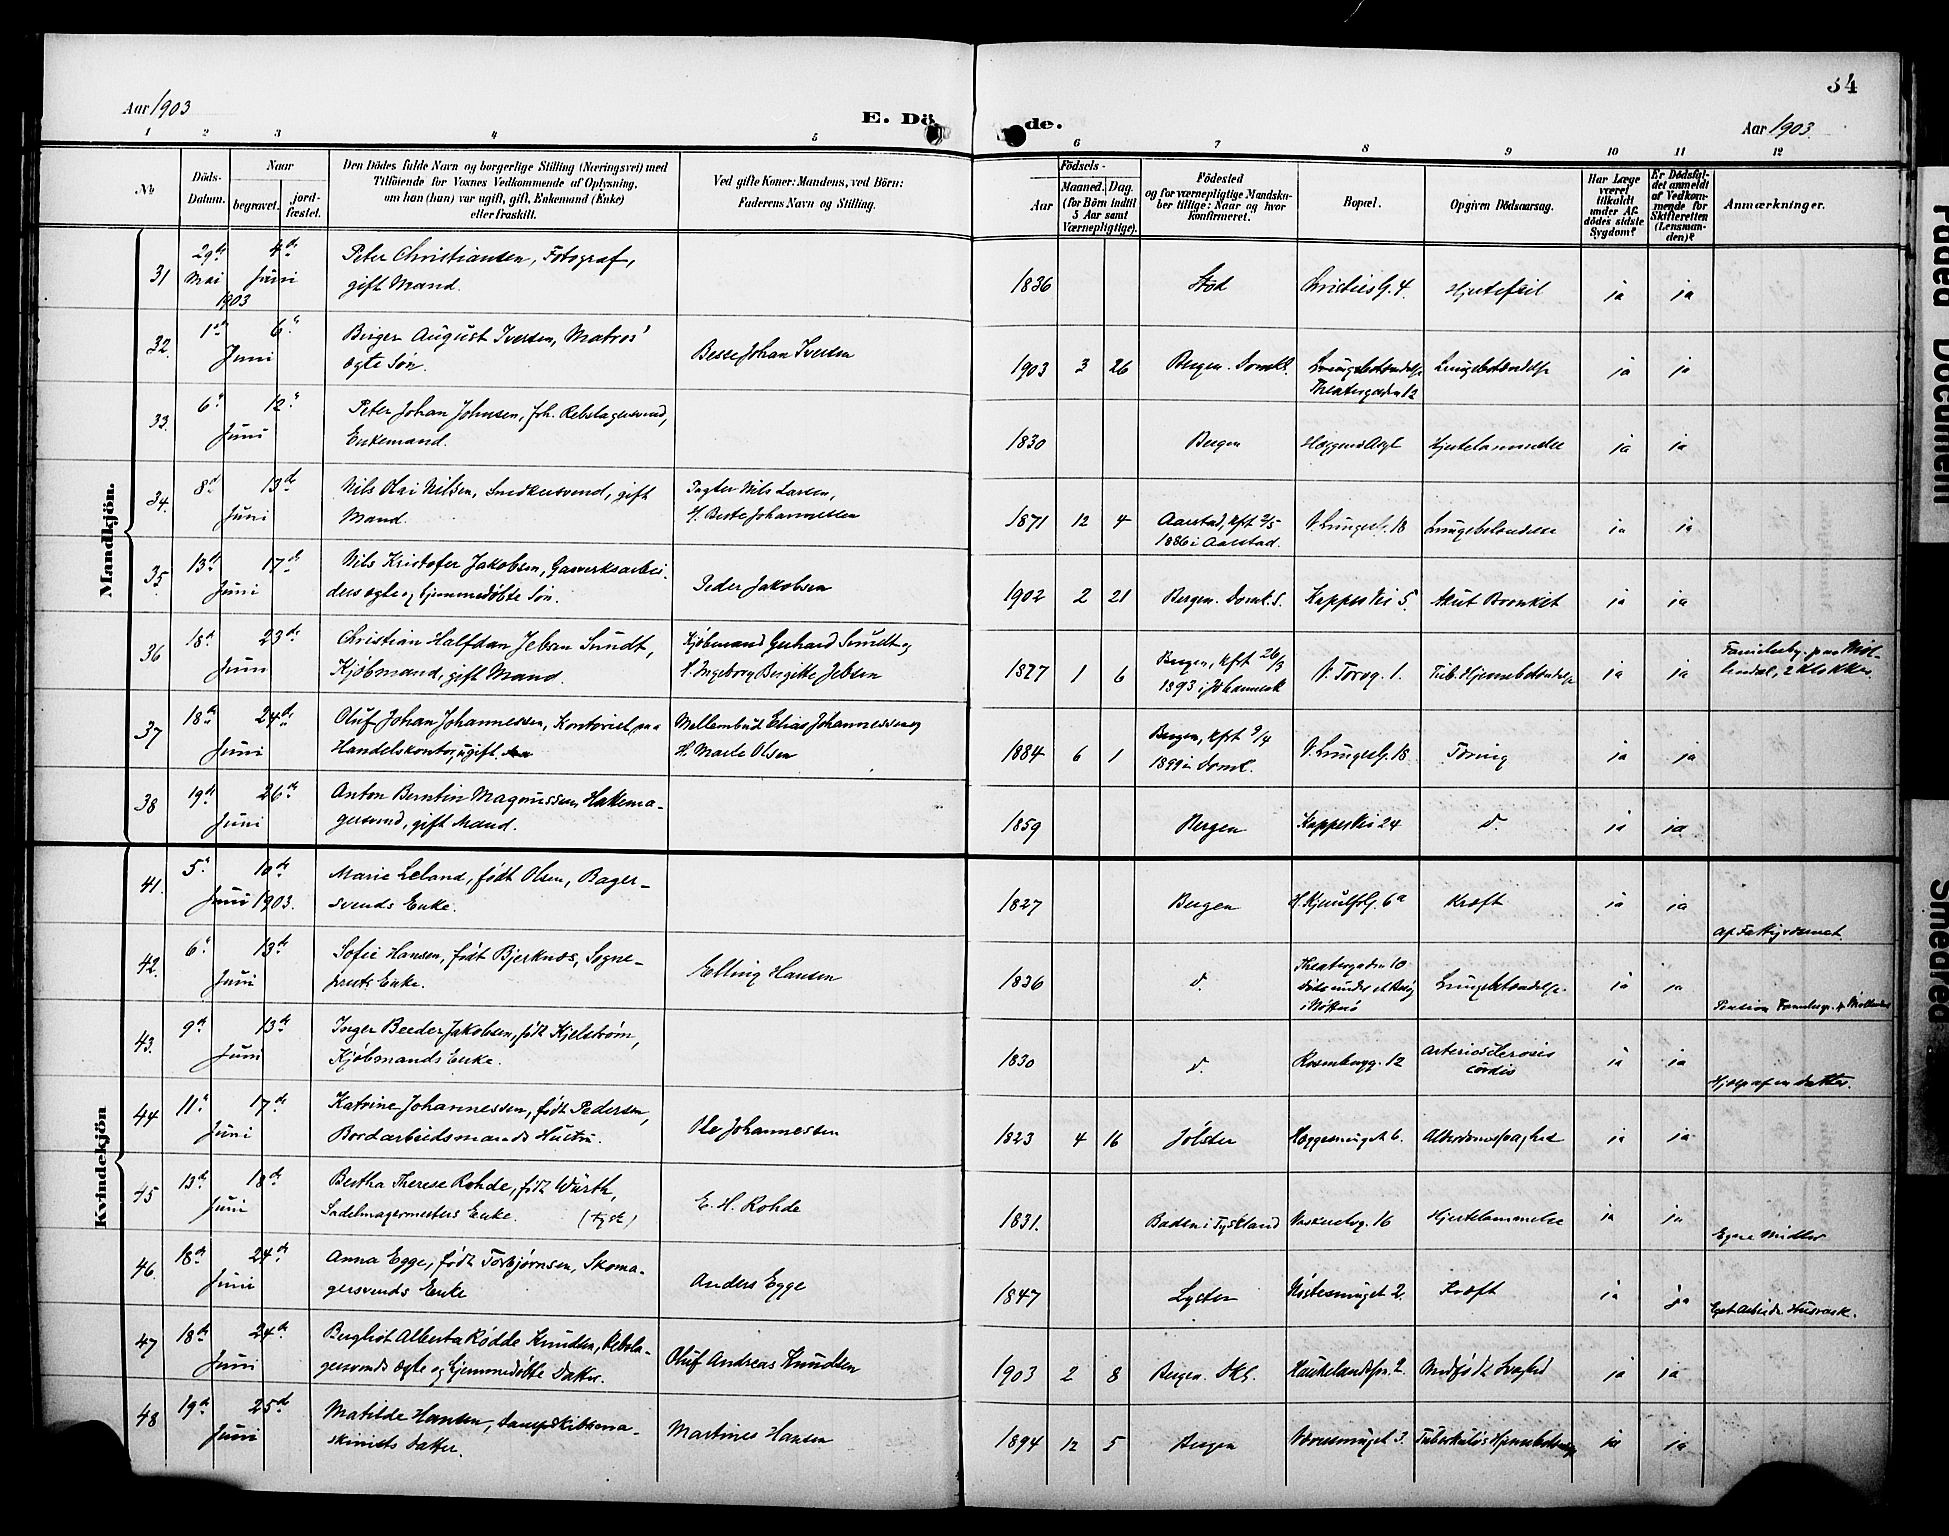 Aar 1903
E. Dö de.
34
Aar 1903.
1 2 3 4 5 6 7 8 9 10 11 12
No
Döds-
Datum.
Naar
begravet.
jord-
fæstet.
Den Dödes fulde Navn og borgerlige Stilling (Næringsvei) med
Tilföiende for Voxnes Vedkommende af Oplysning,
om han (hun) var ugift, gift, Enkemand (Enke)
eller fraskilt.
Ved gifte Koner: Mandens, ved Börn:
Faderens Navn og Stilling.
Födsels-
Aar
Maaned. Dag.
(for Börn indtil
5 Aar samt
Værnepligtige).
Födested
og for værnepligtige Mandska-
ber tillige: Naar og hvor
konfirmeret.
Bopæl.
Opgiven Dödsaarsag.
Har Læge
været
tilkaldt
under Af-
dödes sidste
Sygdom?
Er Dödsfal-
det anmeldt
af Vedkom-
mende for
Skifteretten
(Lensman-
den)?
Anmærkninger.
Mandkjön.
31 29de Mai 1903 4de Juni
Peter Christiansen, Fotograf,
gift Mand.
1836 Stod Christies G. 4. Hjertefeil ja ja
32. 1ste 6te Juni
Birger August Iversen, Matros'
ægte Søn.
Besse Johan Iversen
1903 3 26 Bergen. Domk. Lungebetændelse
Theatergaden 12
Lungebetændelse ja ja
33. 6te 12te Juni
Peter Johan Johnsen, fh. Rebslagersvend,
Enkemand.
1830 Bergen Hjertelammelse ja ja
34. 8de 13de Juni
Nils Olai Nilsen, Snedkersvend, gift
Mand.
Nils Larsen,
H. Beste Johannessen
1871 12 4 Aarstad, kft 9/5
1886 i Aarstad.
V. Lungeg. 18 Lungebetændelse ja ja
35 13de 17de Juni
Nils Kristofer Jakobsen, Gasverksarbei-
ders ægte og hjemmedøbte Søn.
Peder Jakobsen
1902 2 21 Bergen. Domk. S. Kappes Vei 5. Akut Bronkit ja ja
36 18de 23de Juni
Christian Halfdan Jebsen Sundt,
Kjøbmand, gift Mand.
Kjøbmand Gerhard Sundt og
H. Ingeborg Bergitte Jebsen
1877 1 6 Bergen, kft 26/3
1893 i Johannesk
V. Torvg. 1. Tub. Hjernebetændelse ja ja
Familiebg. paa Møl-
lendal, 2 Klokker.
37 18de 24de Juni
Oluf Johan Johannessen, Kontorist paa
Handelskontor, ugift.
Mellembud Elias Johannessen og
H. Marle Olsen
1884 6 1 Bergen, kft 9/4
1899 i Domk.
V. Lungeg. 18 Tæring ja ja
38 19de 26de Juni
Anton Berntin Magnussen, Hakema-
gersvend, gift Mand.
1859 Bergen Kappes Vei 24 d. ja ja
Kvindekjön
41. 5te 10de Juni 1903.
Marie Leland, født Olsen, Bager-
svends Enke.
1827 Bergen 6a Kræft ja ja
af Fattigvæsenet.
42. 6te 13de Juni
Sofie Hansen, født Bjerknæs, Sogne-
prests Enke.
Elling Hansen
1836 d. Theatergaden 10
døde under et Besøg
i Nøtterø
Lungebetændelse. ja ja
Pension Familiegr. p. Møllendal
43. 9de 13de Juni
Inger Beeder Jakobsen, født Kjelstrøm,
Kjøbmands Enke.
1830 d. Rosenbergg. 12 Arteriosclerosis
cordis
ja ja
Hjælp af en Datter.
44 11te 17de Juni
Katrine Johannessen, født Pedersen,
Bordarbeidsmands Hustru.
Ole Johannessen
1823 4 16 Jølster Heggesmuget 6. Alderdomssvaghed ja ja
45 13de 18de Juni
Bertha Therese Rohde, født Würth,
Sadelmagermesters Enke. (tysk)
E. H. Rohde
1831. Baden i Tyskland Vaskerelvg. 16 Hjertelammelse ja ja
Egne Midler
46. 18de 24de Juni
Anna Egge, født Torbjørnsen, Skoma-
gersvends Enke
Anders Egge
1847 Lyster Nøstesmuget 2. Kræft ja ja
Eget Arbeide Husvask.
47 18de 24de Juni
Bergliot Alberta Rødde Knudsen, Rebsla-
gersvends ægte og hjemmedøbte Datter.
Oluf Andreas Knudsen
1903 2 8 Bergen. Dk. S. Haukelandsvn. 2. Medfødt Svaghed ja ja
48 19de 25de Juni
Matilde Hansen, Dampskibsma-
skinists Datter.
Martines Hansen
1894 12 5 Bergen 3. Tuberkuløs Hjernebetændelse ja ja
Faded Document
Smeared